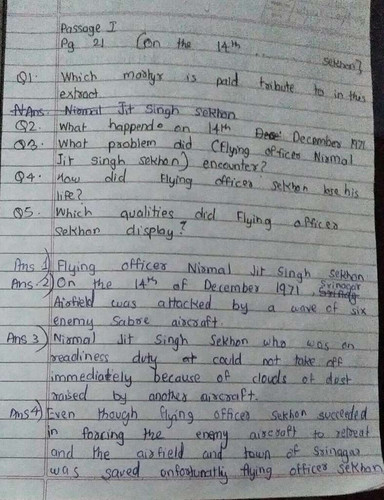 Passage I
Pg 21 (on the 14th ..
sekhon)
Q1. Which martyr is paid tribute to in this
extract.
Ans. Nirmal Jit Singh Sekhon
Q2. What happende on 14th December 1971
Q3. What problem did (Flying officer Nirmal
Jit Singh Sekhon) encounter?
Q4. How did Flying officer Sekhon lose his
life?
Q5. Which qualities did Flying officer
Sekhon display?
Ans 1) Flying officer Nirmal Jit Singh Sekhon
Ans. 2) On the 14th of December 1971 Srinagar
Airfield was attacked by a wave of six
enemy Sabre aircraft.
Ans 3) Nirmal Jit Singh Sekhon who was on
readiness duty at could not take off
immediately because of clouds of dust
raised by another aircraft.
Ans 4) Even though flying officer Sekhon succeeded
in forcing the enemy aircraft to retreat
and the airfield and town of Srinagar
was saved unfortunatly flying officer Sekhon